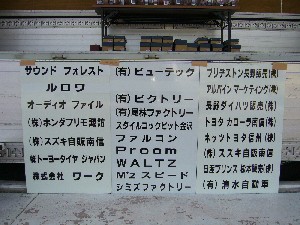 サウンド フォレスト
ルロワ
オーディオ ファイル
(株)ホンダプリモ
(株)スズキ自販南信
(株)トーヨータイヤ ジャパン
株式会社 ワーク
(有)ビューテック
(有)ビクトリー
(有)尾林ファクトリー
スタイルコックピット金沢
ファルコン
Proom
WALTZ
M'z スピード
シミズファクトリー
ブリヂストン長野販売(株)
アルパイン マーケティング(株)
長野ダイハツ販売(株)
トヨタ カローラ南信(株)
ネッツトヨタ信州(株)
(株)スズキ自販南信
日産プリンス松本販売(株)
(有)清水自動車